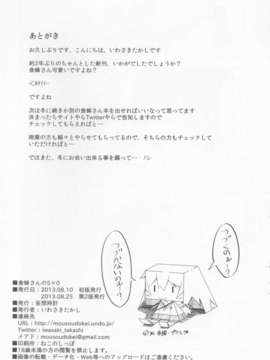 あとがき
お久しぶりです、こんにちは。いわさきたかしです
約2年ぶりのちゃんとした新刊、いかがでしたでしょうか?
貪婪さん可愛いですよね?
ですよね
次は冬に続きか別の貪婪さん本を出せればいいなって思ってます
決まったらサイトやらTwitterやらで告知しますので
チェックしてもらえればと…
商業の方も細々とやらせてもらってるので、そちらの方もチェックして
いただければと…
ではまた、冬にお会い出来る事を願って… ノシ
■発行日:2013.08.10 初版発行
2013.08.25 第2版発行
■発行:妄想時計
■発行者:いわさきたかし
■連絡先
URL : http://mousoudokei.undo.jp/
Twitter : iwasaki_takashi
メアド : mousoudokei@gmail.com
■印刷所:ねこのしっぽ
■18歳未満の方の閲覧を禁止
■画像の転載・データ化・Web等へのアップロードはご遠慮ください。